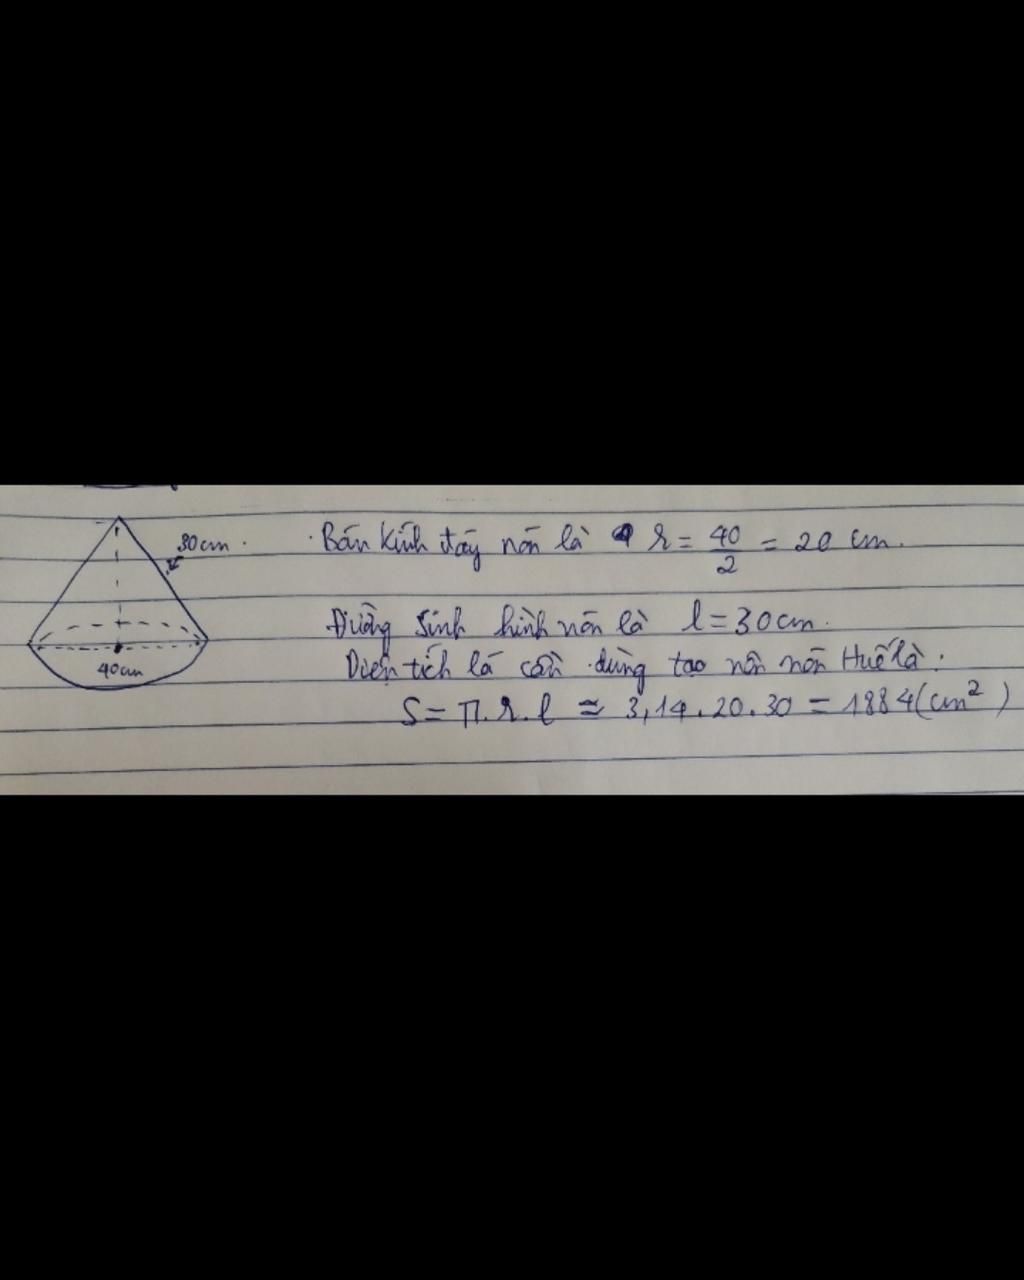 30cm.
40cm
Bán kính đáy nón là r = 40/2 = 20 cm.
Đường sinh hình nón là l = 30 cm.
Diện tích lá cần dùng tạo nên nón Huế là:
S = π.r.l ≈ 3,14.20.30 = 1884 (cm²)